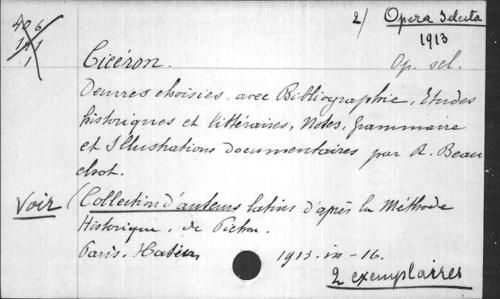 2/ Opera Selecta
1913
Cicéron.
Op. sel.
Oeuvres choisies, avec Bibliographie, Etudes
historiques et littéraires, Notes, Grammaire
et Illustrations documentaires par A. Beau
chot.
Voir (Collection d'auteurs latins d'après la Méthode
Historique, de Pichon.
Paris. Hatier 1913. in-16.
2 exemplaires